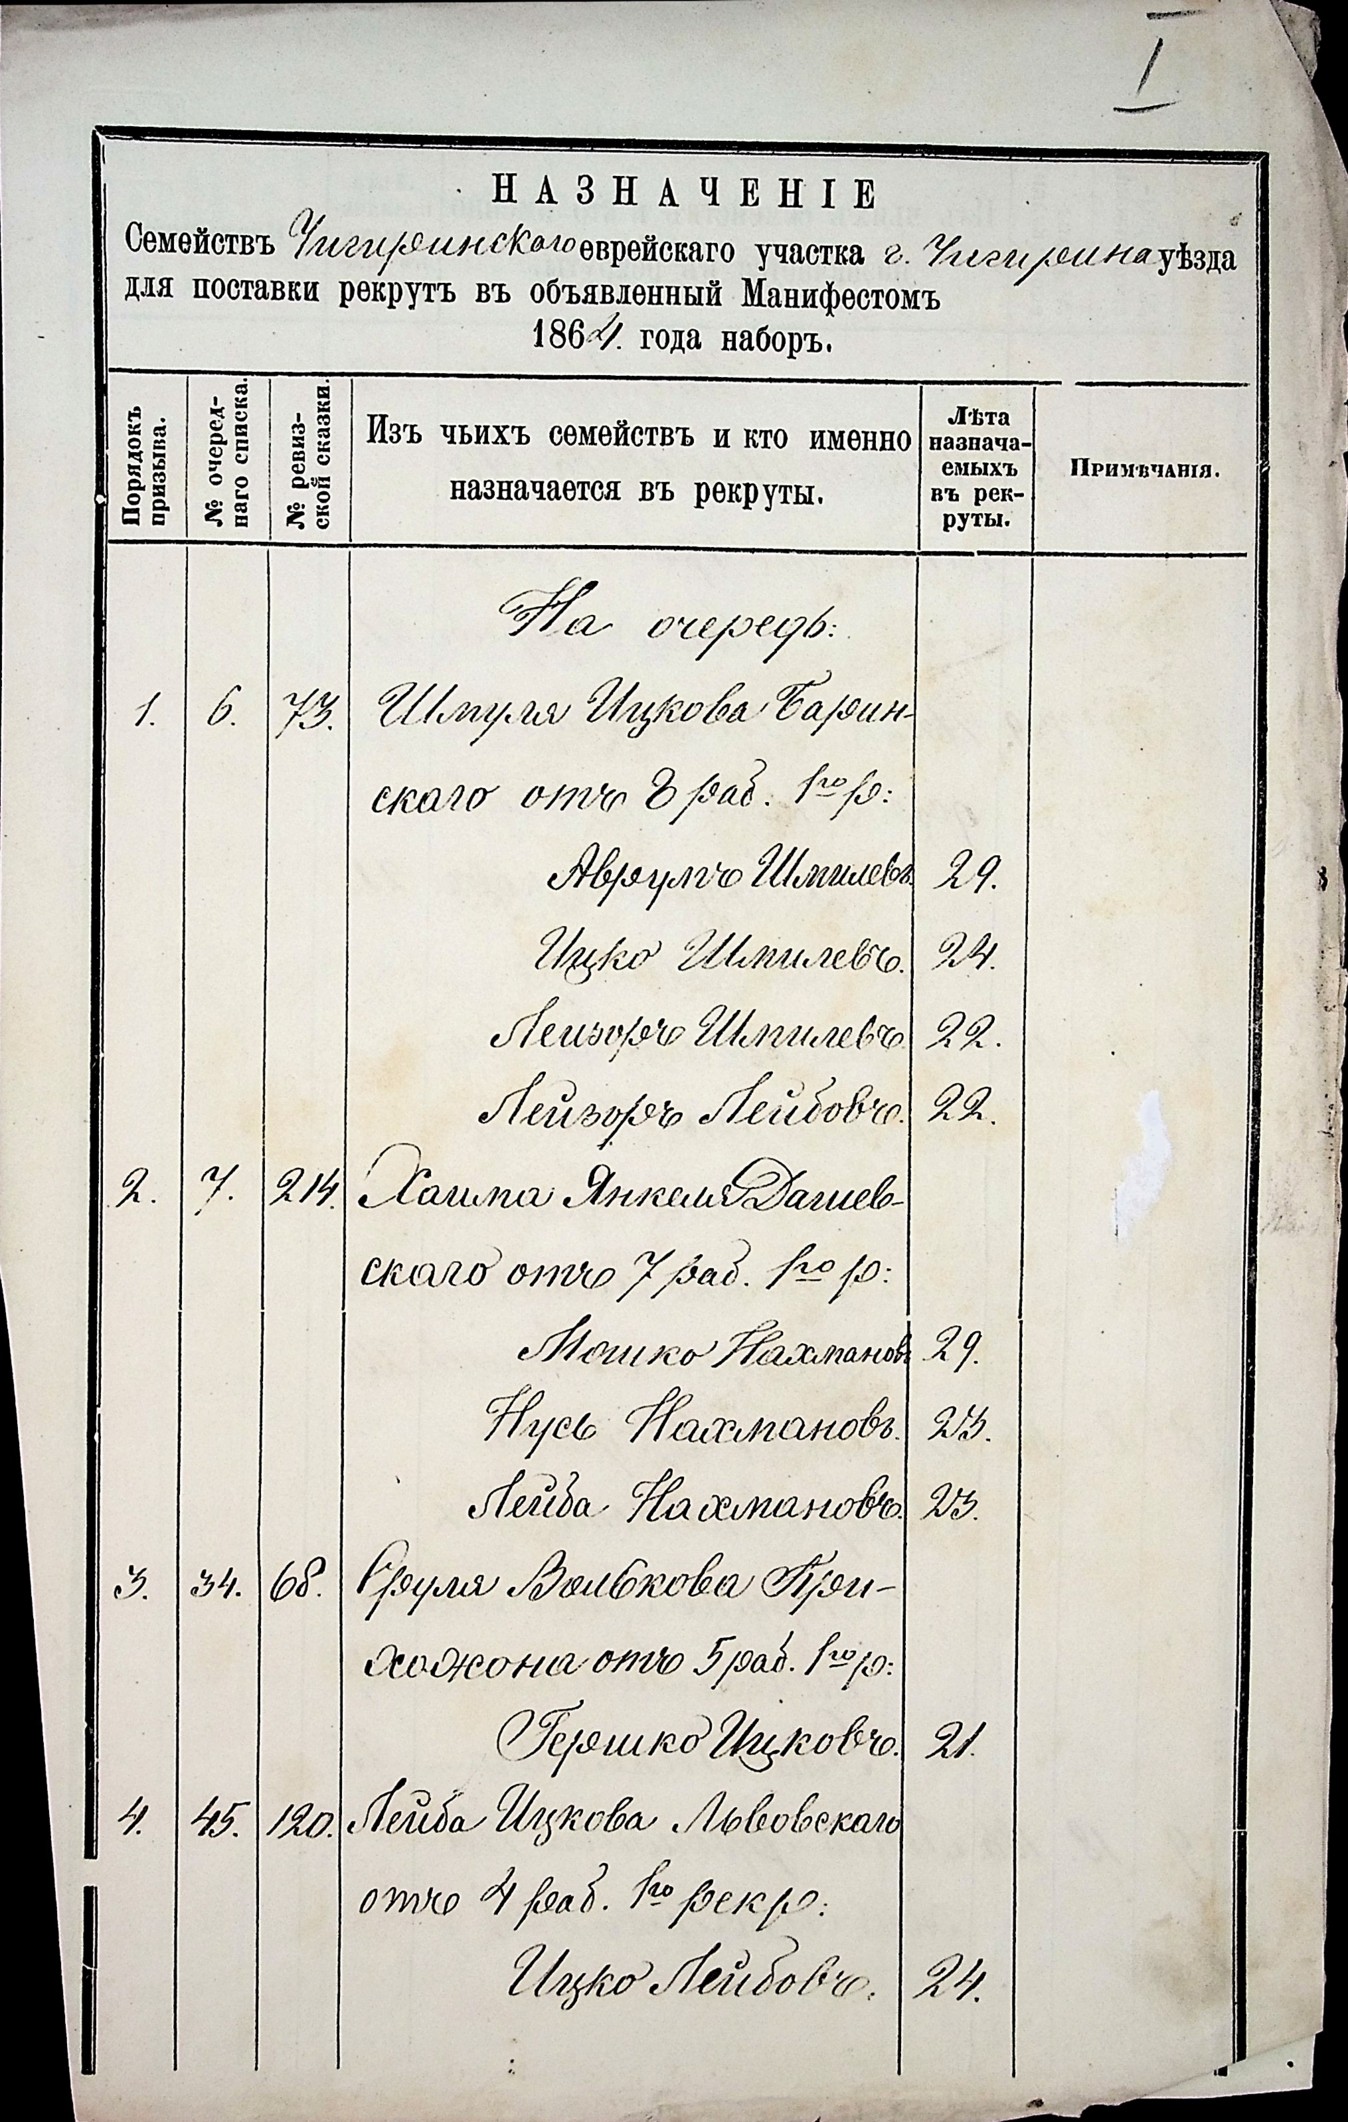 I
НАЗНАЧЕНІЕ
Семействъ Чигиринскаго еврейскаго участка г. Чигирина уѣзда
для поставки рекрутъ въ объявленный Манифестомъ
1864. года наборъ.
Порядокъ призыва.
№ очереднаго списка.
№ ревизской сказки.
Изъ чьихъ семействъ и кто именно
назначается въ рекруты.
Лѣта
назнача-
емыхъ
въ рек-
руты.
Примѣчанія.
На очередь:
1. 6. 73. Шмуля Ицкова Барин-
скаго отъ 8 раб. 1го р:
Аврумъ Шмилевъ 29.
Ицко Шмилевъ. 24.
Лейзоръ Шмилевъ 22.
Лейзоръ Лейбовъ. 22.
2. 7. 214. Хаима Янкеля Дашев-
скаго отъ 7 раб. 1го р:
Мошко Нахмановъ 29.
Нусь Нахмановъ. 23.
Лейба Нахмановъ. 23.
3. 34. 68. Сруля Волькова При-
хожона отъ 5 раб. 1го р:
Гершко Ицковъ. 21.
4. 45. 120. Лейба Ицкова Львовскаго
отъ 4 раб. 1го рекр:
Ицко Лейбовъ. 24.